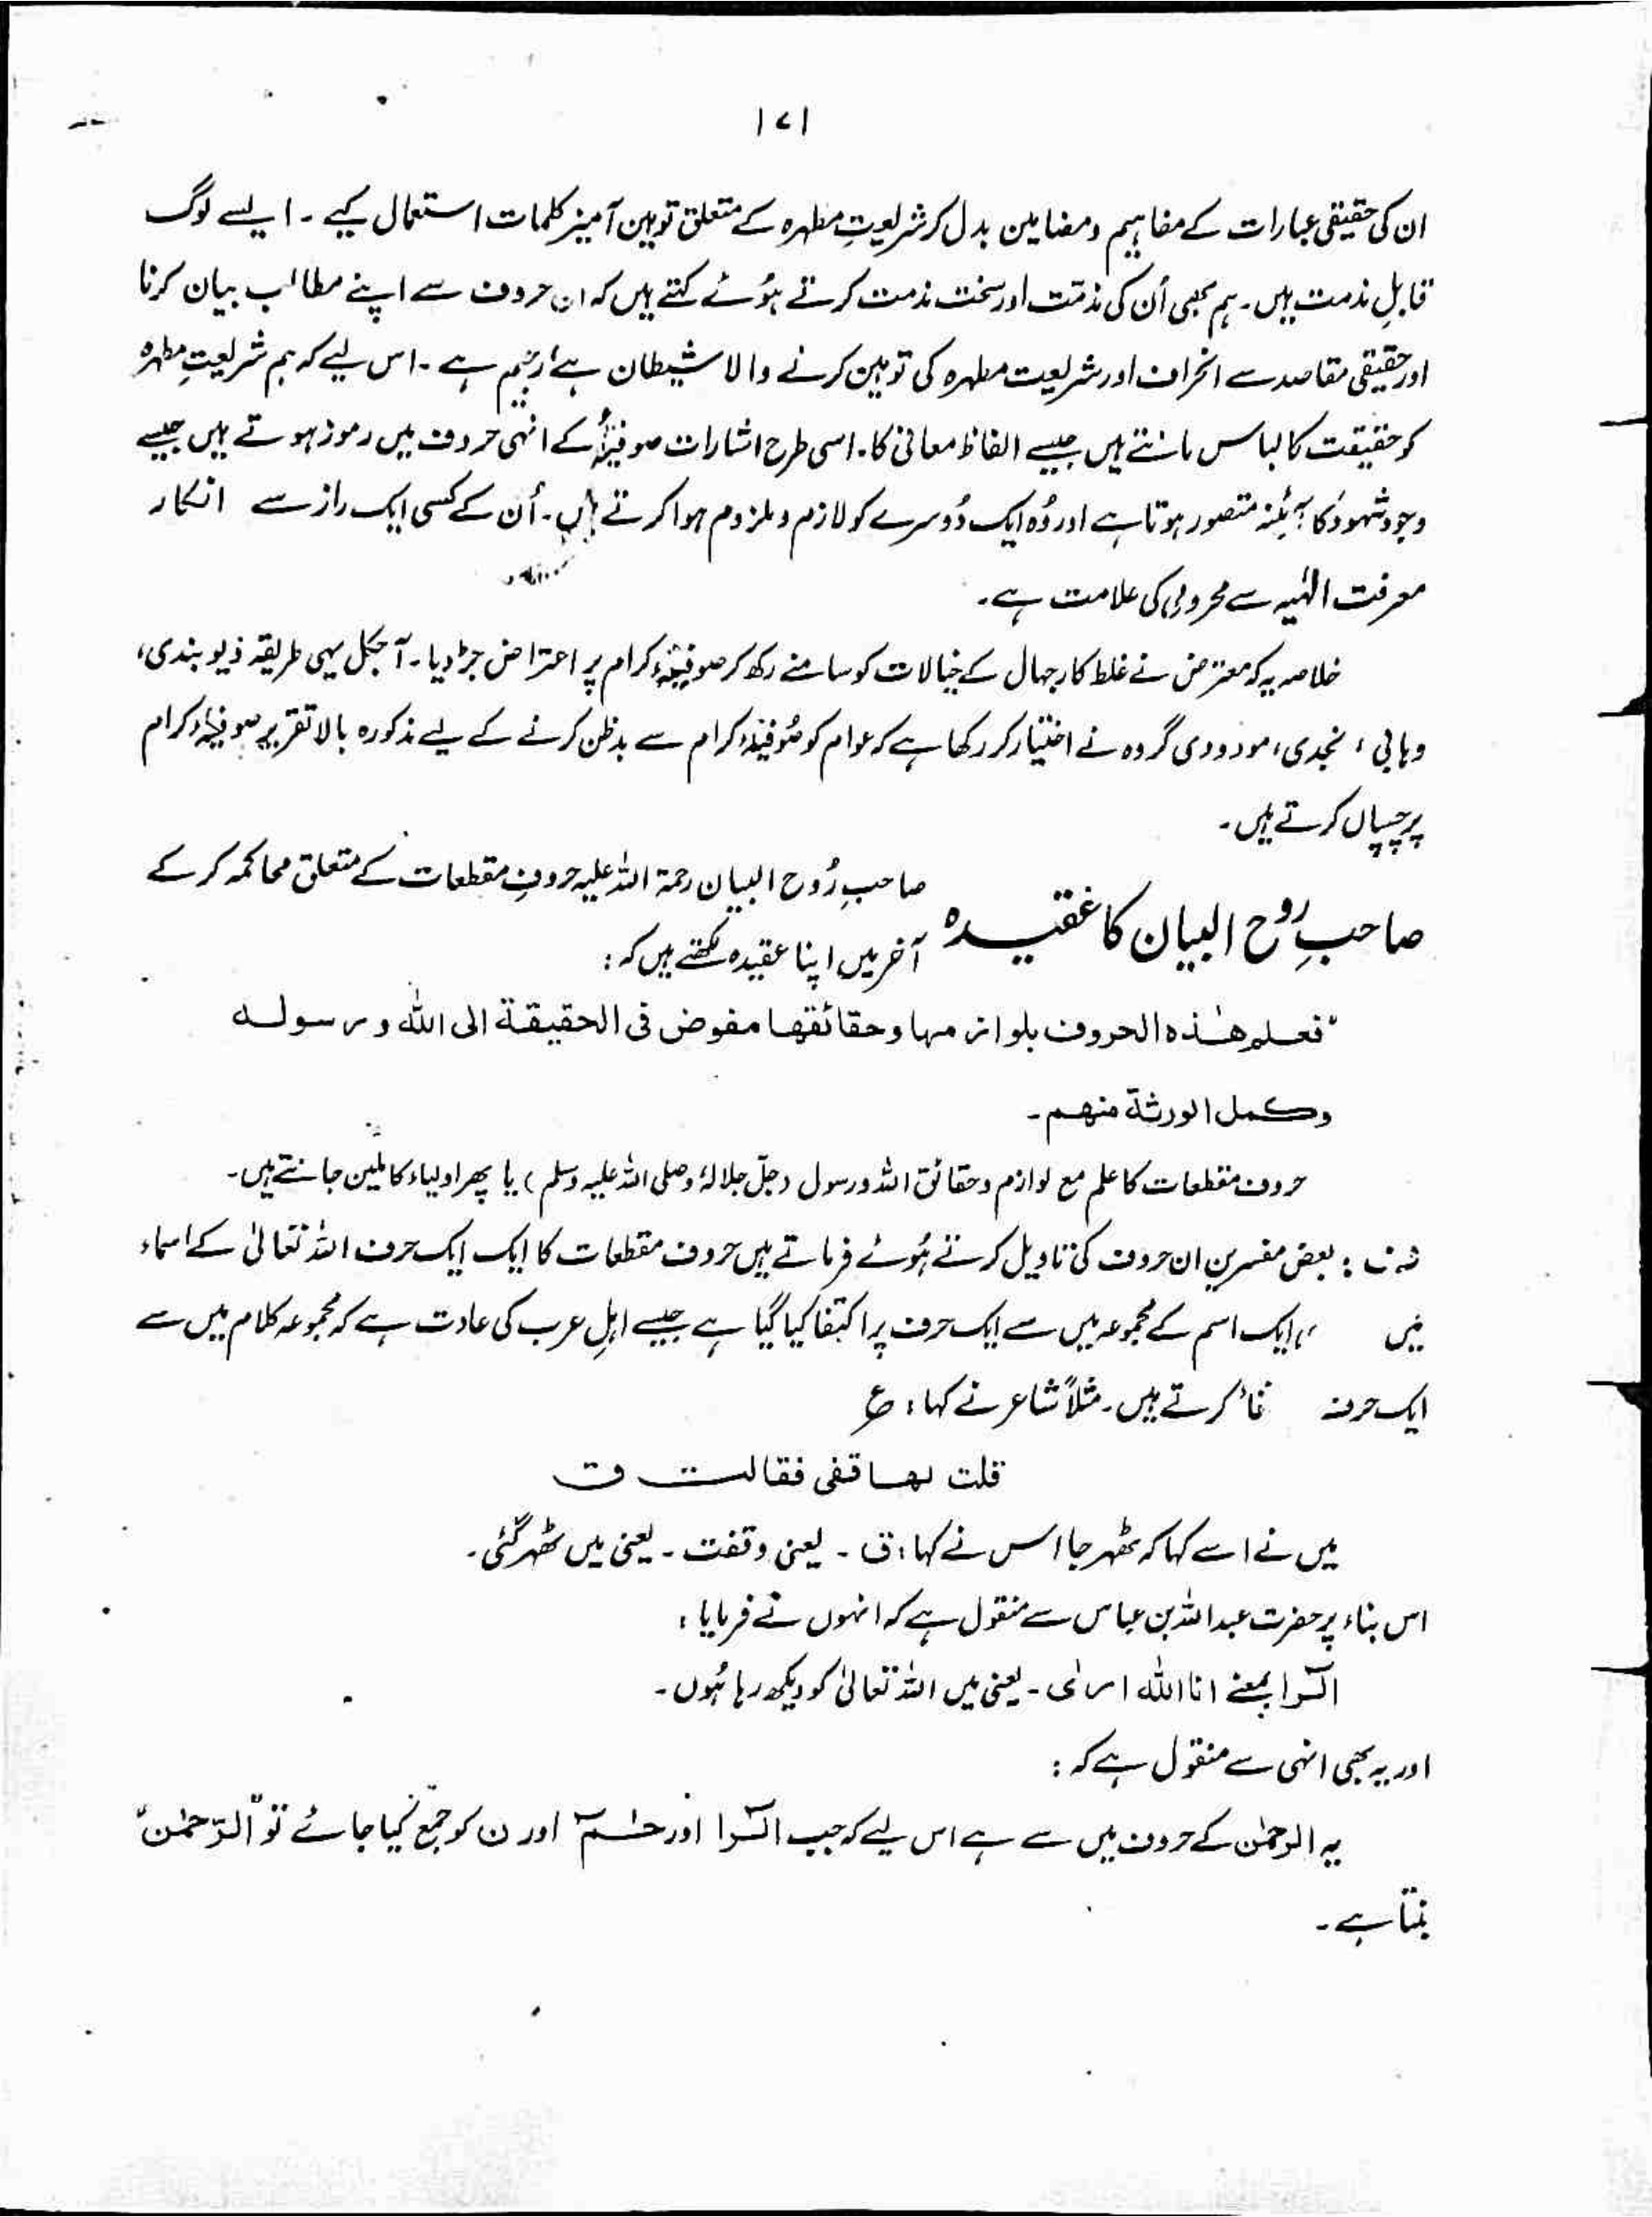 ۱۷۱
ان کی حقیقی عبارات کے مفاہیم و مضامین بدل کر شریعتِ مطہرہ کے متعلق توہین آمیز کلمات استعمال کیے ۔ ایسے لوگ
قابلِ مذمت ہیں۔ ہم بھی اُن کی مذمّت اور سخت مذمت کرتے ہُوئے کہتے ہیں کہ ان حروف سے اپنے مطالب بیان کرنا
اور حقیقی مقاصد سے انحراف اور شریعت مطہرہ کی توہین کرنے والا شیطان ہے، رجیم ہے ۔ اس لیے کہ ہم شریعتِ مطہرہ
کو حقیقت کا لباس مانتے ہیں جیسے الفاظ معانی کا۔ اسی طرح اشارات صوفیہؒ کے انہی حروف میں رموز ہوتے ہیں جیسے
وجود شہود کا آئینہ متصور ہوتا ہے اور وُہ ایک دُوسرے کو لازم و ملزوم ہوا کرتے ہیں۔ اُن کے کسی ایک راز سے انکار
معرفت الٰہیہ سے محرومی کی علامت ہے۔
خلاصہ یہ کہ معترض نے غلط کار جہال کے خیالات کو سامنے رکھ کر صوفیۂ کرام پر اعتراض جڑ دیا۔ آجکل یہی طریقہ دیوبندی،
وہابی، نجدی، مودودی گروہ نے اختیار کر رکھا ہے کہ عوام کو صُوفیۂ کرام سے بدظن کرنے کے لیے مذکورہ بالا تقریر صوفیۂ کرام
پر چسپاں کرتے ہیں۔
صاحبِ روح البیان کا عقیدہ
صاحبِ رُوح البیان رحمۃ اللہ علیہ حروفِ مقطعات کے متعلق محاکمہ کر کے
آخر میں اپنا عقیدہ لکھتے ہیں کہ :
"فعلم هٰذه الحروف بلوازمها وحقائقها مفوض فی الحقیقة الی الله ورسوله
وکمل الورثة منهم۔
حروف مقطعات کا علم مع لوازم و حقائق اللہ و رسول (جلّ جلالہٗ و صلی اللہ علیہ وسلم) یا پھر اولیاء کاملین جانتے ہیں۔
ف : بعض مفسرین ان حروف کی تاویل کرتے ہُوئے فرماتے ہیں حروف مقطعات کا ایک ایک حرف اللہ تعالیٰ کے اسماء
ہیں ایک اسم کے مجموعہ میں سے ایک حرف پر اکتفا کیا گیا ہے جیسے اہلِ عرب کی عادت ہے کہ مجموعہ کلام میں سے
ایک حرف کرتے ہیں۔ مثلاً شاعر نے کہا : ع
قلت لها قفی فقالت ق
میں نے اسے کہا کہ ٹھہر جا اس نے کہا : ق ۔ یعنی وقفت ۔ یعنی میں ٹھہر گئی۔
اس بناء پر حضرت عبداللہ بن عباس سے منقول ہے کہ انہوں نے فرمایا :
الٓرا بمعنے انا اللّٰه ارٰی ۔ یعنی میں اللہ تعالیٰ کو دیکھ رہا ہُوں۔
اور یہ بھی انہی سے منقول ہے کہ :
یہ الرحمٰن کے حروف میں سے ہے اس لیے کہ جب الٓرا اور حٰمٓ اور ن کو جمع کیا جائے تو "الرّحمٰن"
بنتا ہے۔